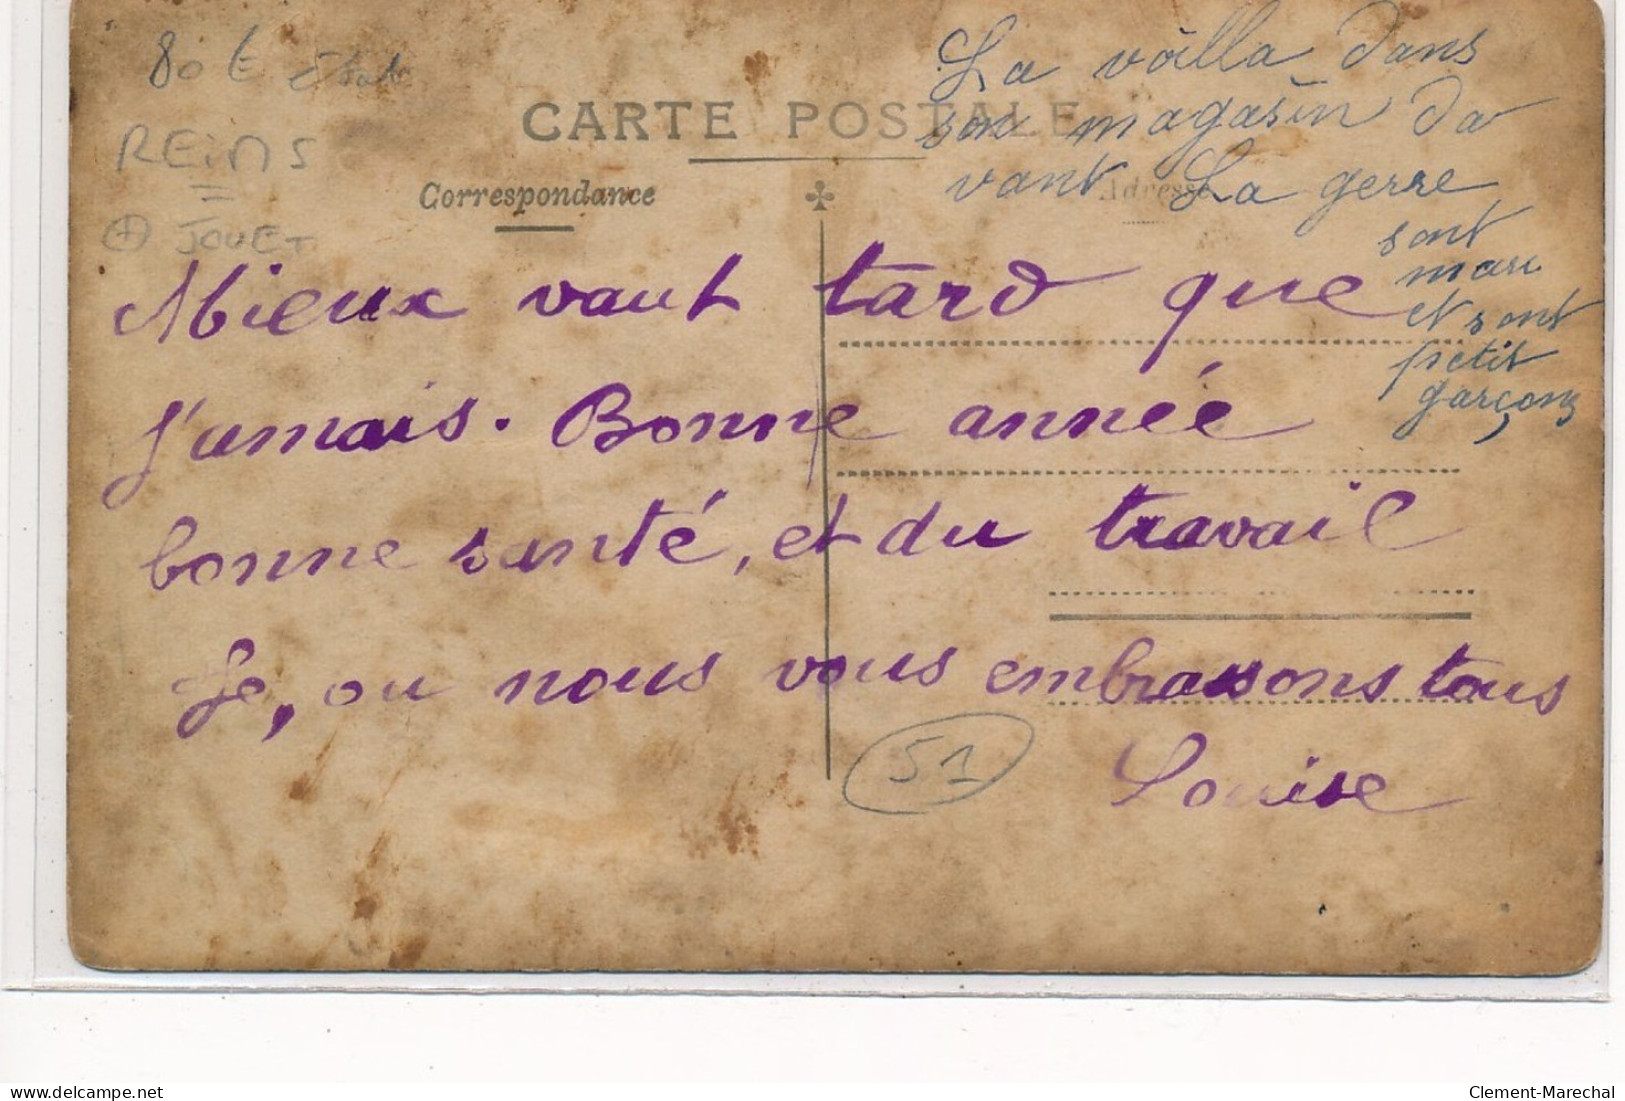 80 E état
REiMS
+ JOUET
La voilla dans
son magasin da
vant La gerre
sont
mari
et sont
petit
garçons
CARTE POSTALE
Correspondance
Adresse
Mieux vaut tard que
j'amais. Bonne année
bonne santé, et du travail
Je, ou nous vous embrassons tous
51
Louise
Clement-Marechal
www.delcampe.net